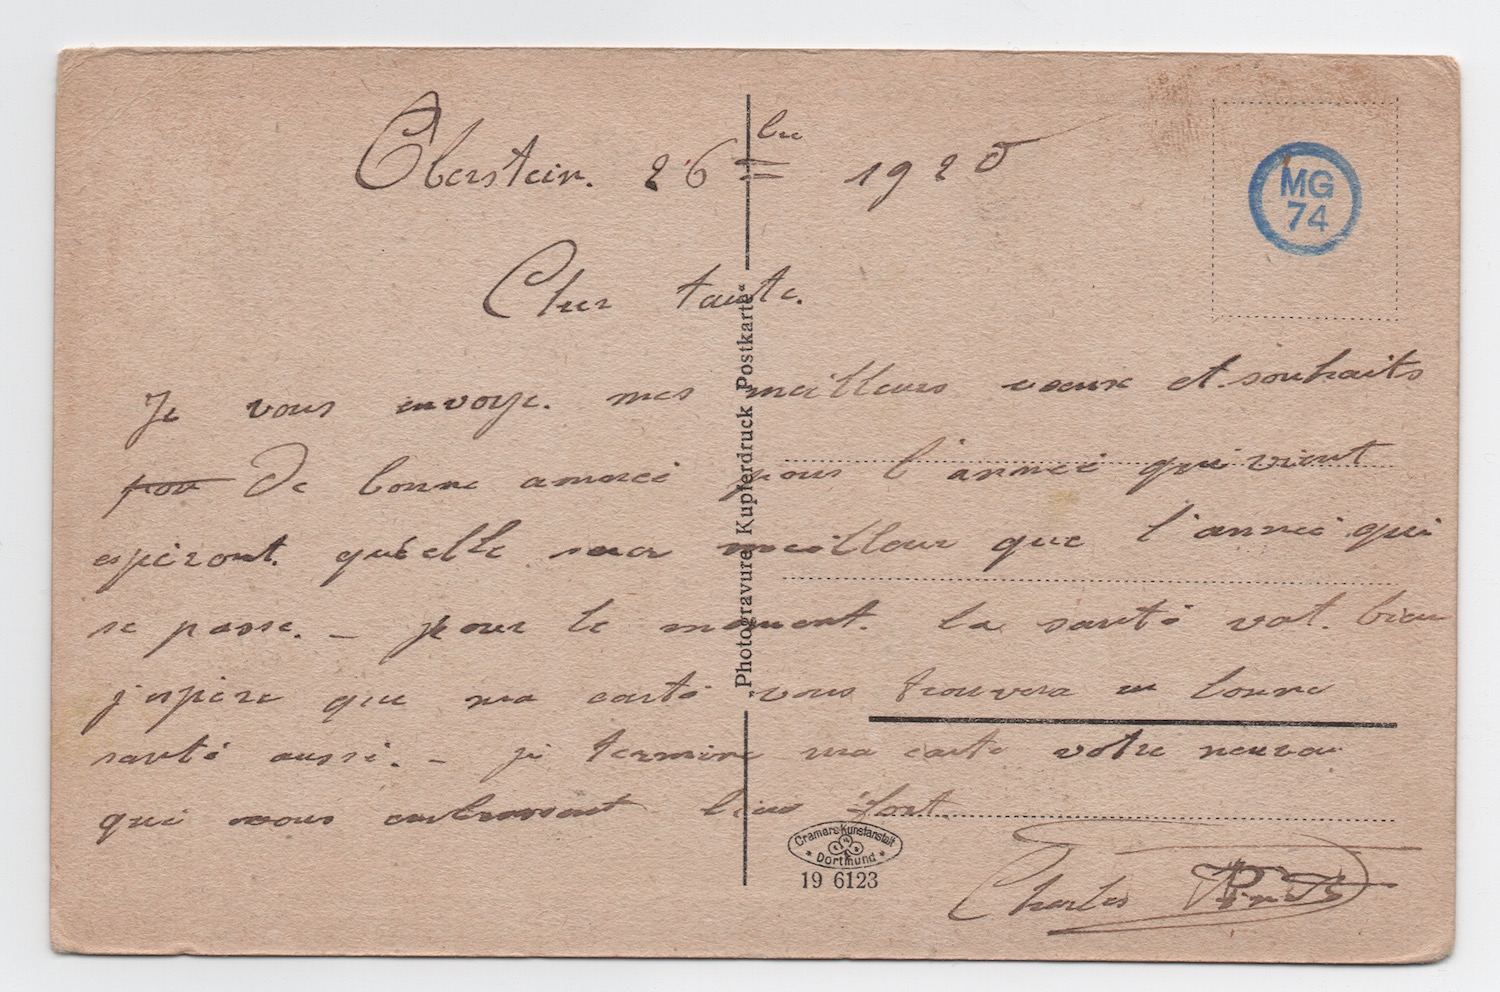 Oberstein. 26 bre 1920
MG
74
Cher tante.
Je vous envoye. mes meilleurs voeux et souhaits
pour De bonne anneé pour l'anneé qui vient
esperont. qu'elle sera meilleur que l'anneé qui
se passe. _ pour le moment. la santé vat. bien
j'espère que ma carte vous trouvera en bonne
santé aussi. _ je termine ma carte votre neuveu
qui vous embrassent bien fort.
Charles
„Photogravure Kupferdruck Postkarte“
Cramers Kunstanstalt
Dortmund
19 6123